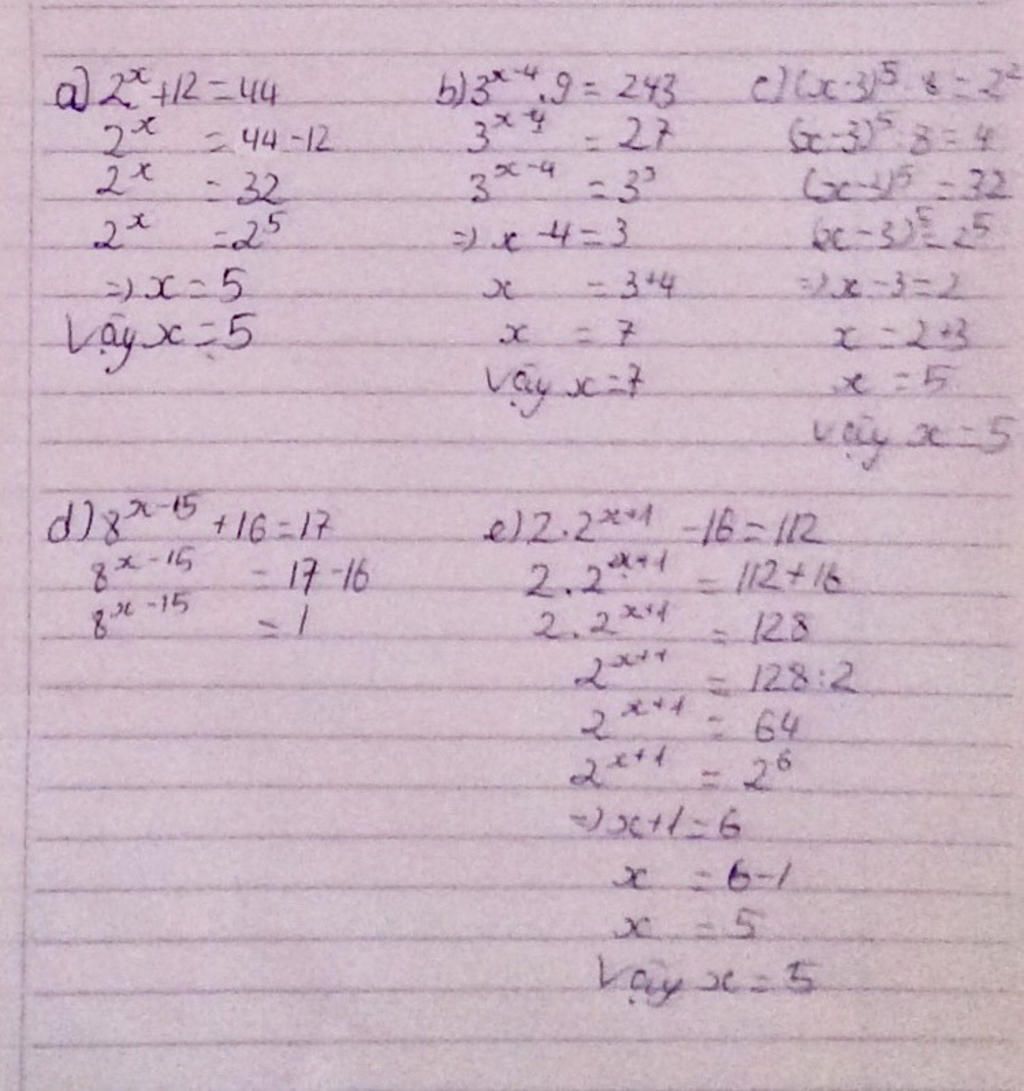 a) 2^x + 12 = 44
2^x = 44 - 12
2^x = 32
2^x = 2^5
=> x = 5
Vậy x = 5
b) 3^{x-4} . 9 = 243
3^{x-4} = 27
3^{x-4} = 3^3
=> x - 4 = 3
x = 3 + 4
x = 7
Vậy x = 7
c) (x-3)^5 : 8 = 2^2
(x-3)^5 : 8 = 4
(x-3)^5 = 32
(x-3)^5 = 2^5
=> x - 3 = 2
x = 2 + 3
x = 5
Vậy x = 5
d) 8^{x-15} + 16 = 17
8^{x-15} = 17 - 16
8^{x-15} = 1
e) 2 . 2^{x+1} - 16 = 112
2 . 2^{x+1} = 112 + 16
2 . 2^{x+1} = 128
2^{x+1} = 128 : 2
2^{x+1} = 64
2^{x+1} = 2^6
=> x + 1 = 6
x = 6 - 1
x = 5
Vậy x = 5